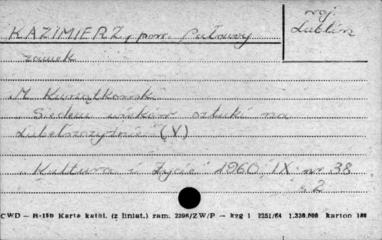 KAZIMIERZ, pow. Puławy
woj.
Lublin
zamek
M. Kwiatkowski
"Siedem wieków sztuki na
Lubelszczyźnie" (V)
"Kultura i Życie" 1960, IX nr 38
s. 2
CWD — H-15b Karta katal. (z liniat.) zam. 2296/ZW/P — kzg 1 2251/64 1.330.000 karton